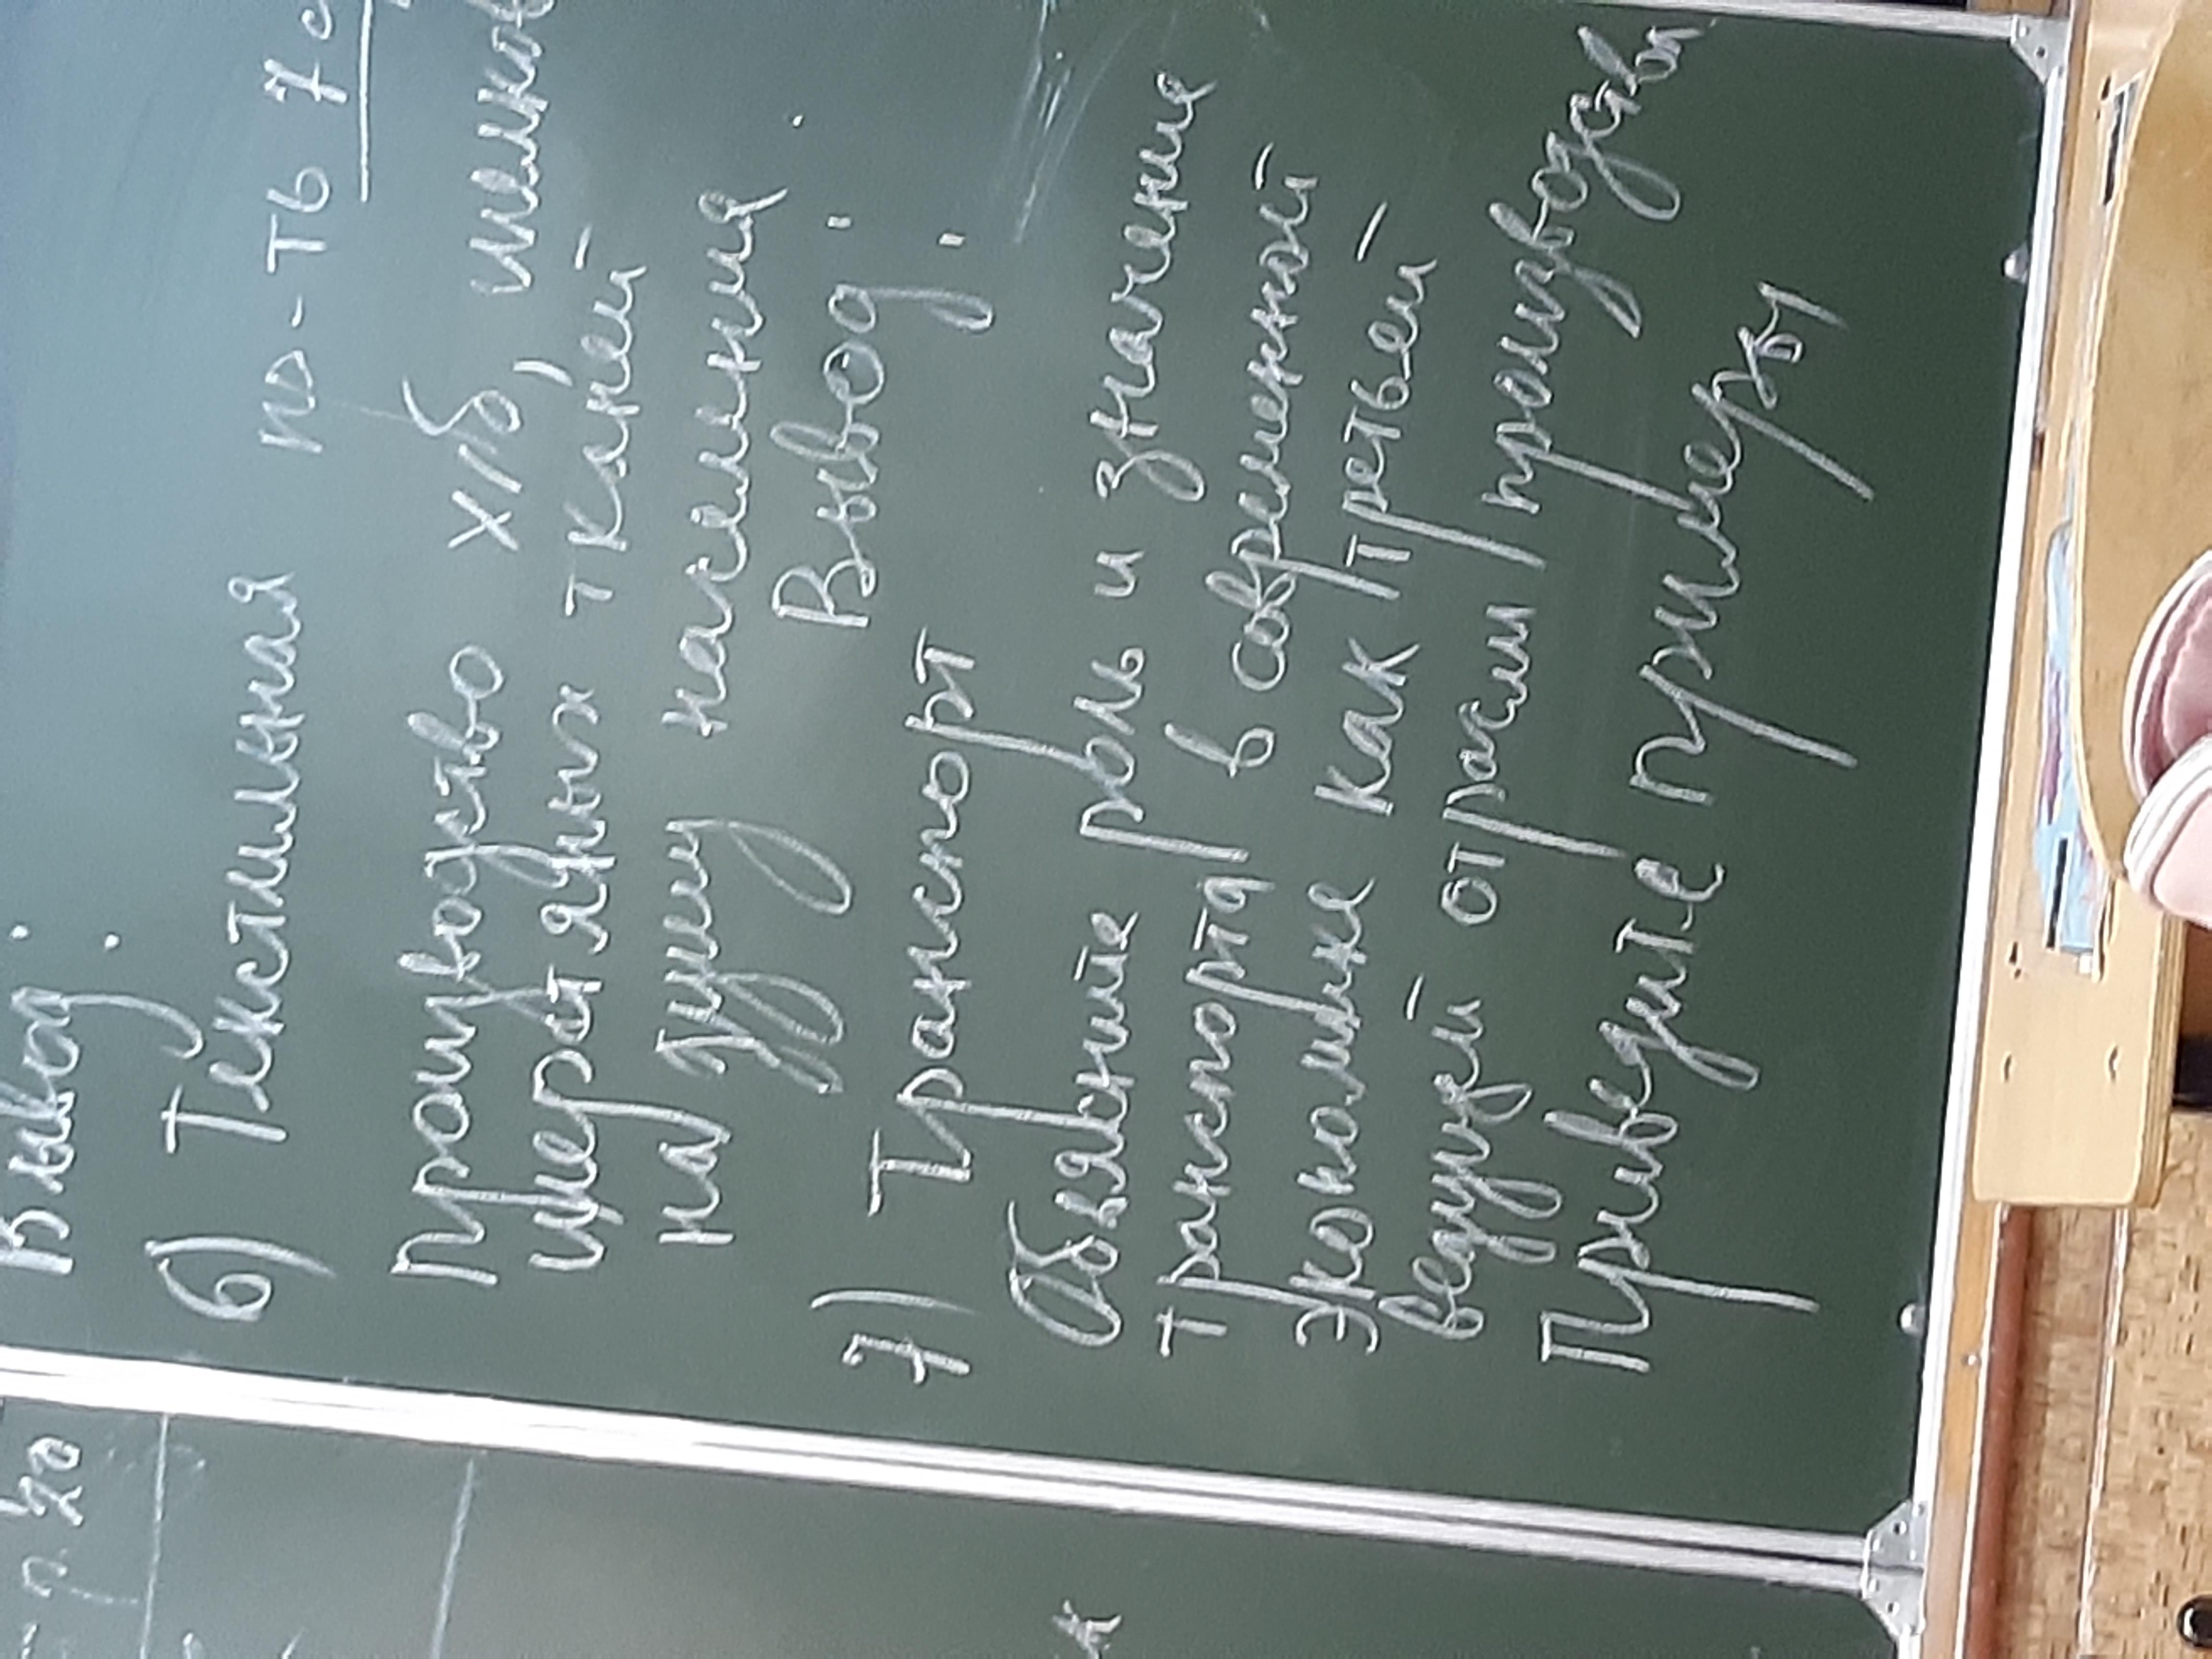 Вывод:
6) Текстильная пр-ть
Производство х/б, шелков
шерстяных тканей
на душу населения.
Вывод:
7) Транспорт
Объясните роль и значение
транспорта в современной
экономике как третьей
ведущей отрасли производства
Приведите примеры